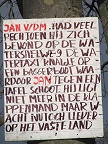 JAN V/DM. HAD VEEL
PECH TOEN HIJ ZICH
BEVOND OP DE WA
TERSNELWEG DE WA
TERTAXI KNALDE OP
EEN BAGGERBOOT WAAR
DOOR JAN TEGEN EEN
TAFEL SCHOOT. HIJ LIGT
NIET MEER IN DE LAP
PPENMAND MAAR W
ACHT NU TOCH LIEVER
OP HET VASTE LAND